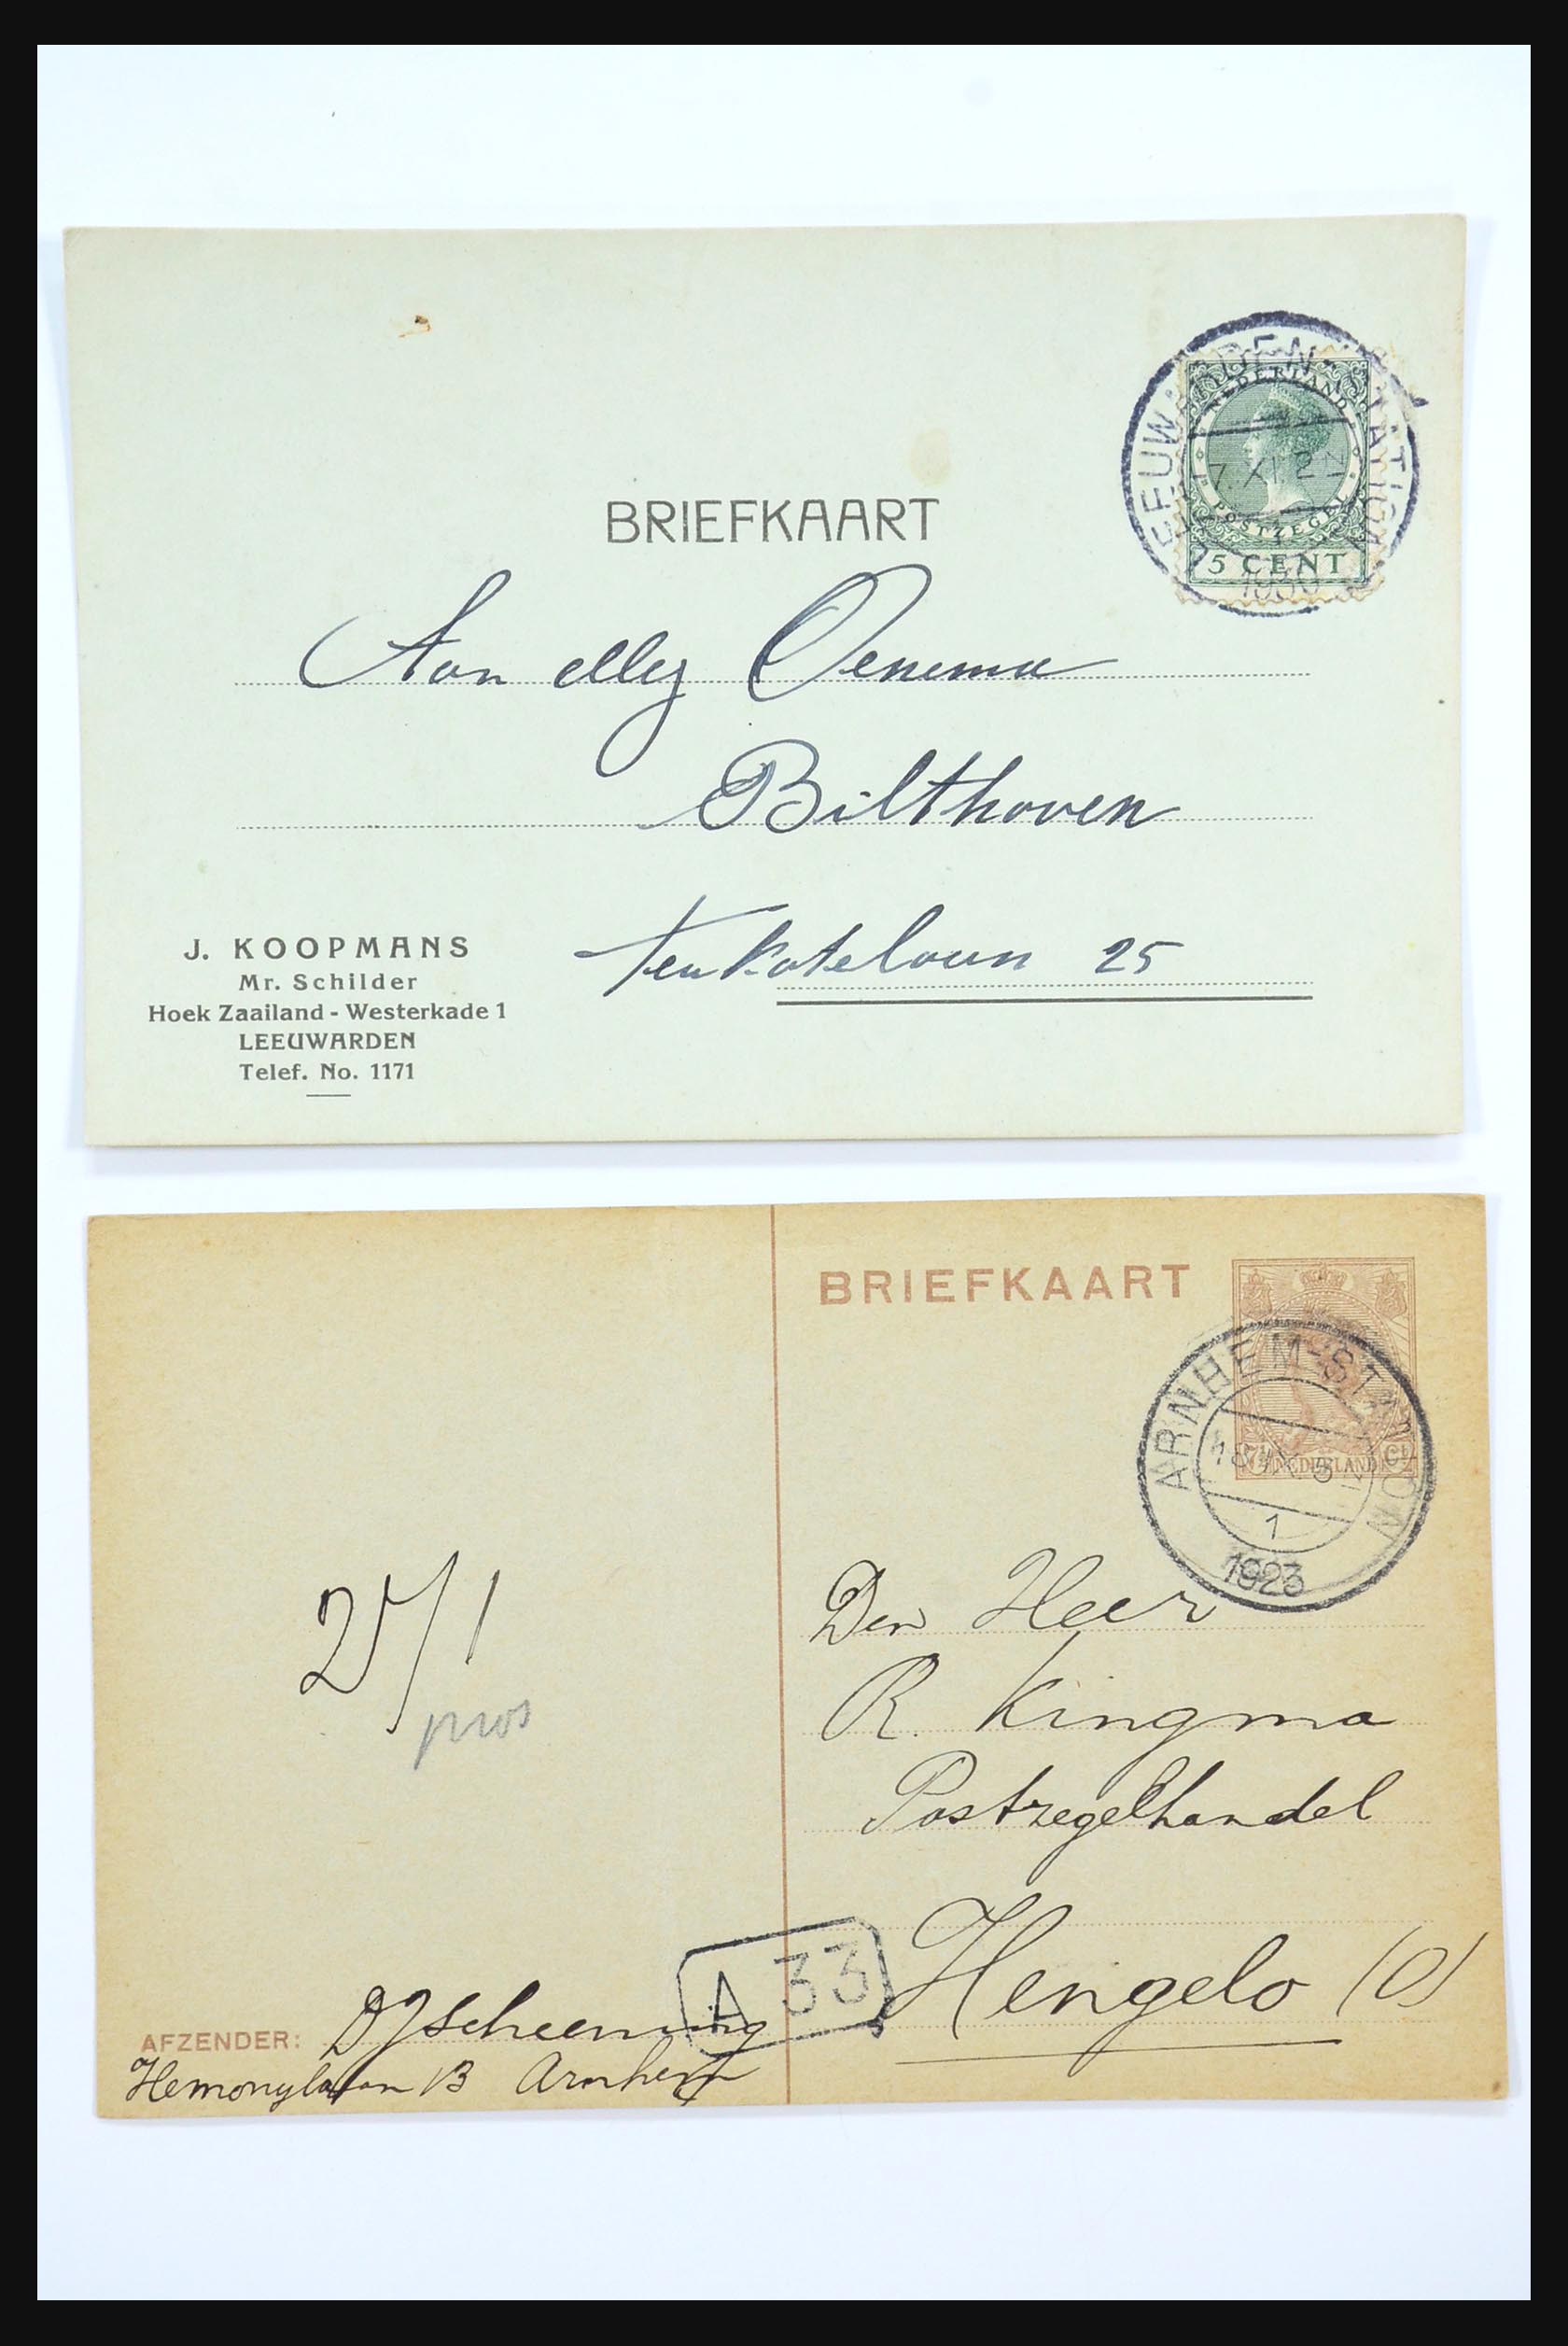 LEEUWARDEN-STATION
7.XI. 2-N
1930
NEDERLAND
POSTZEGEL
5 CENT
BRIEFKAART
Aan elley Oenema
Bilthoven
ten Katelaan 25
J. KOOPMANS
Mr. Schilder
Hoek Zaailand - Westerkade 1
LEEUWARDEN
Telef. No. 1171
BRIEFKAART
7½ NEDERLAND Ct
ARNHEM-STATION
1
1923
Den Heer
R. Kingma
Postzegelhandel
Hengelo (O)
pros
A 33
AFZENDER: DJ Scheening
Hemonylaan 13 Arnhem